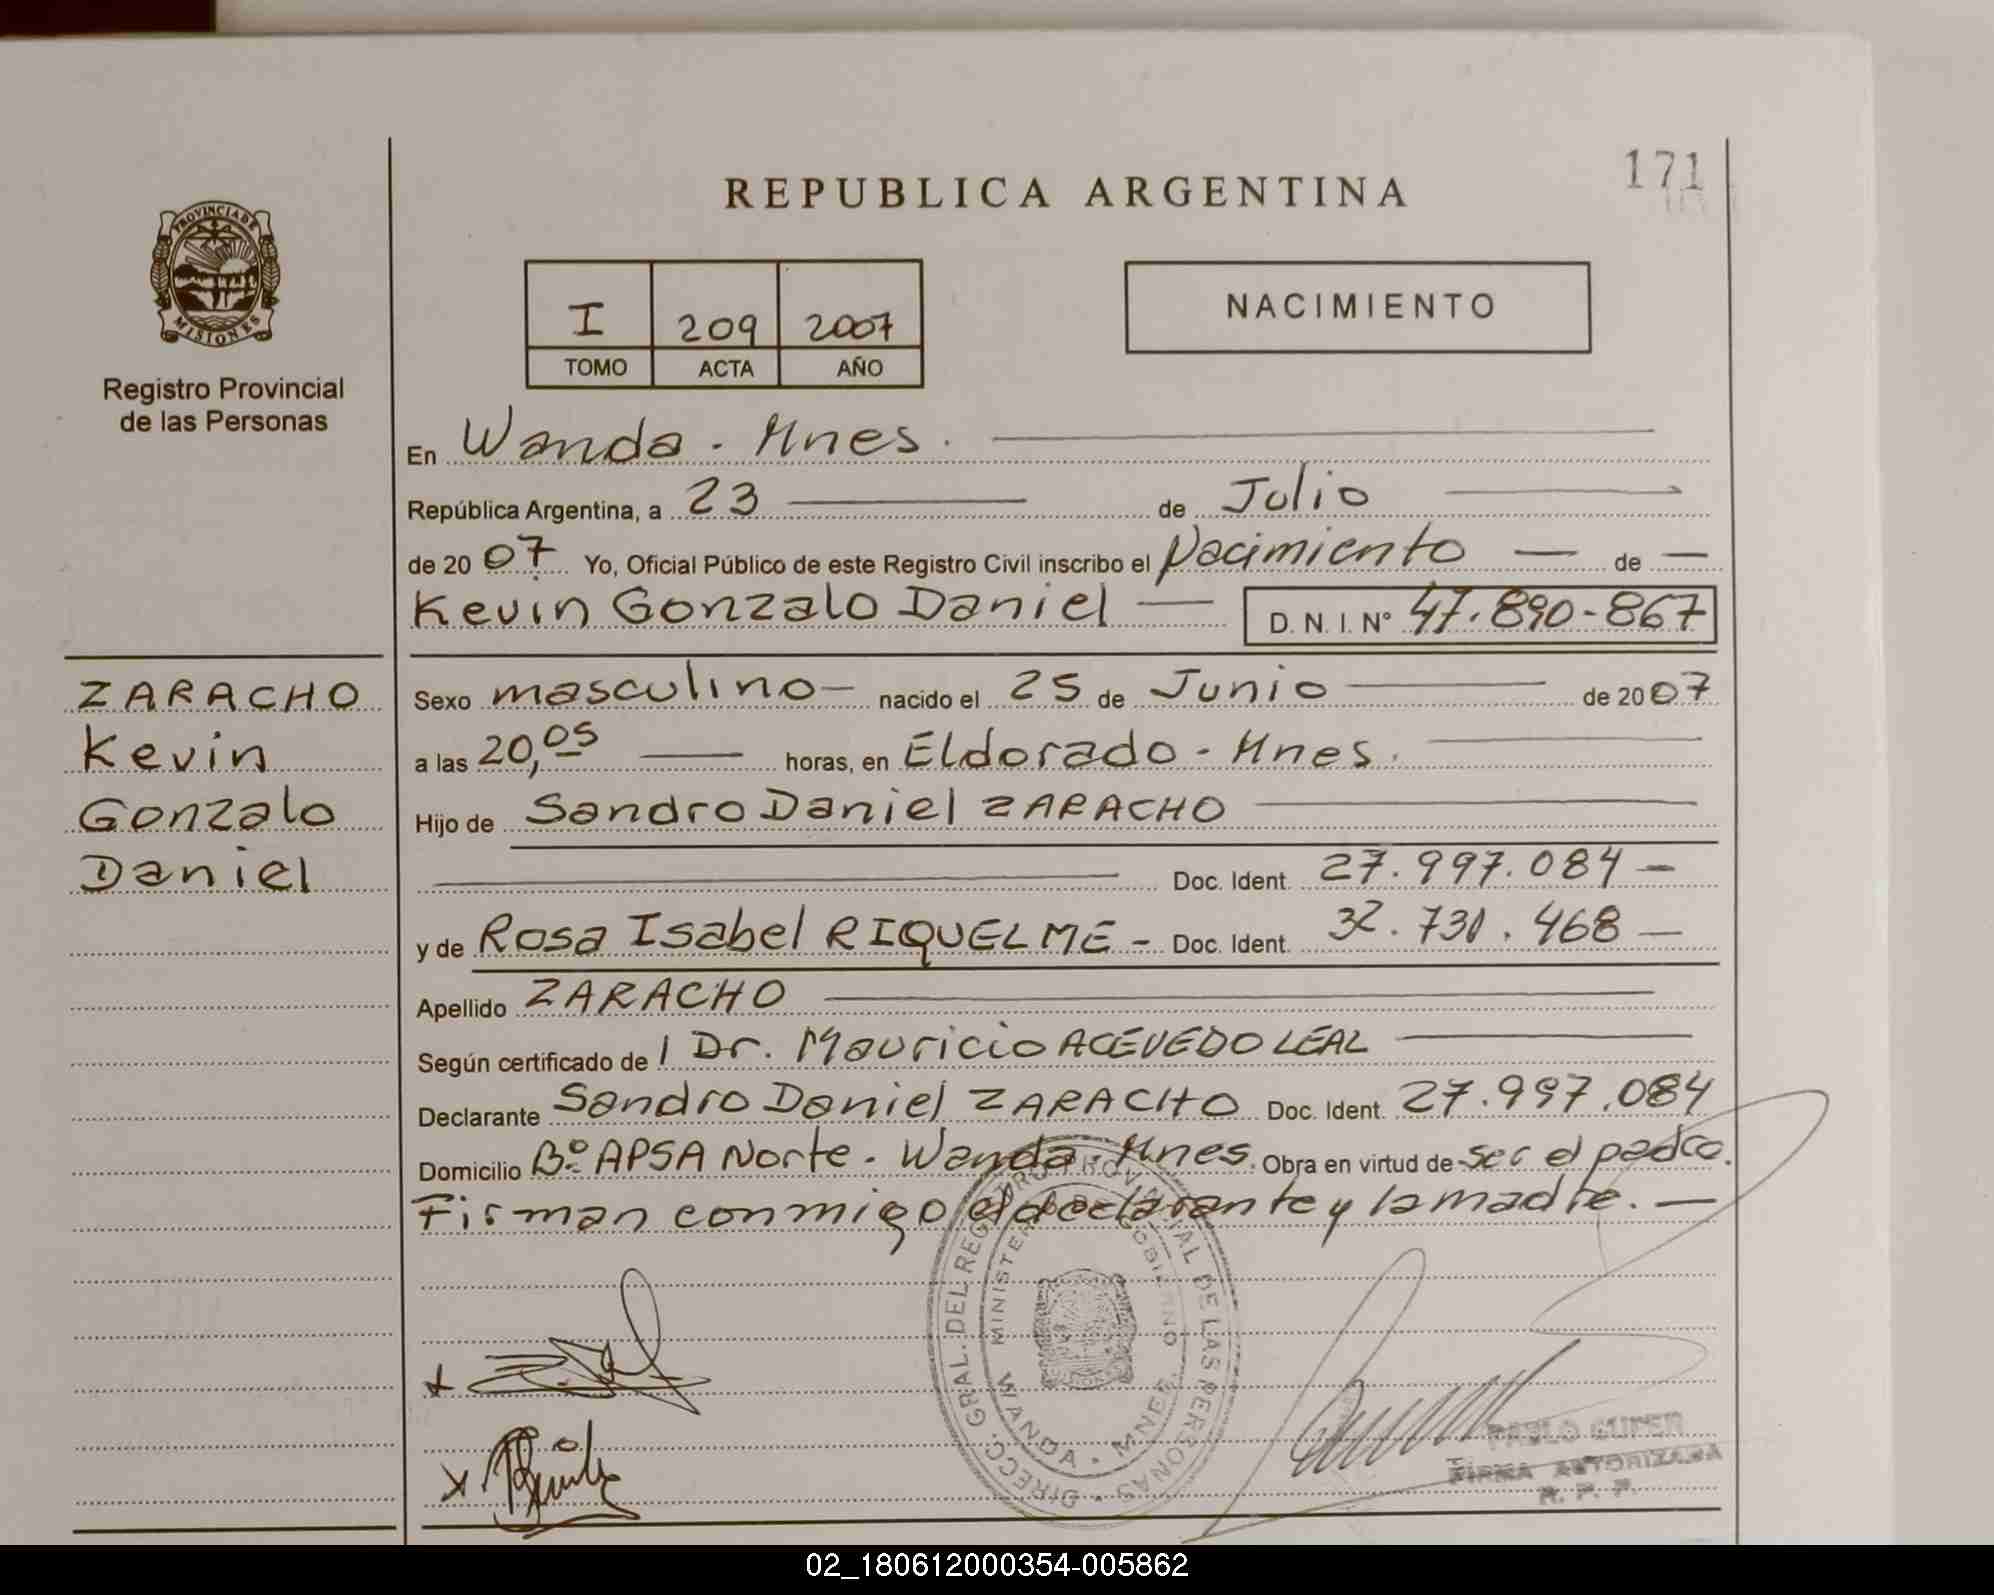 171
REPUBLICA ARGENTINA
PROVINCIA DE
MISIONES
Registro Provincial
de las Personas
I 209 2007
TOMO ACTA AÑO
NACIMIENTO
En Wanda - Mnes.
República Argentina, a 23 de Julio
de 2007 Yo, Oficial Público de este Registro Civil inscribo el Nacimiento de
Kevin Gonzalo Daniel D. N. I. N° 47.890-867
ZARACHO
Kevin
Gonzalo
Daniel
Sexo masculino nacido el 25 de Junio de 2007
a las 20,05 horas, en Eldorado - Mnes.
Hijo de Sandro Daniel ZARACHO
Doc. Ident. 27.997.084
y de Rosa Isabel RIQUELME - Doc. Ident. 32.730.468
Apellido ZARACHO
Según certificado de l Dr. Mauricio ACEVEDO LEAL
Declarante Sandro Daniel ZARACHO Doc. Ident. 27.997.084
Domicilio B° APSA Norte - Wanda - Mnes. Obra en virtud de ser el padre.
Firman conmigo el declarante y la madre.
DIRECC. GRAL. DEL REGISTRO PROVINCIAL DE LAS PERSONAS
MINISTERIO DE GOBIERNO
WANDA - MNES
PABLO
FIRMA AUTORIZADA
R. P. P.
02_180612000354-005862